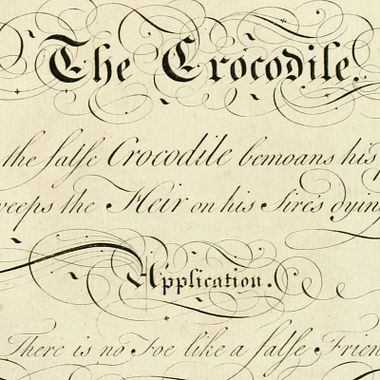 The Crocodile.
the falſe Crocodile bemoans his
weeps the Heir on his Sire's dying
Application.
There is no Foe like a falſe Frien